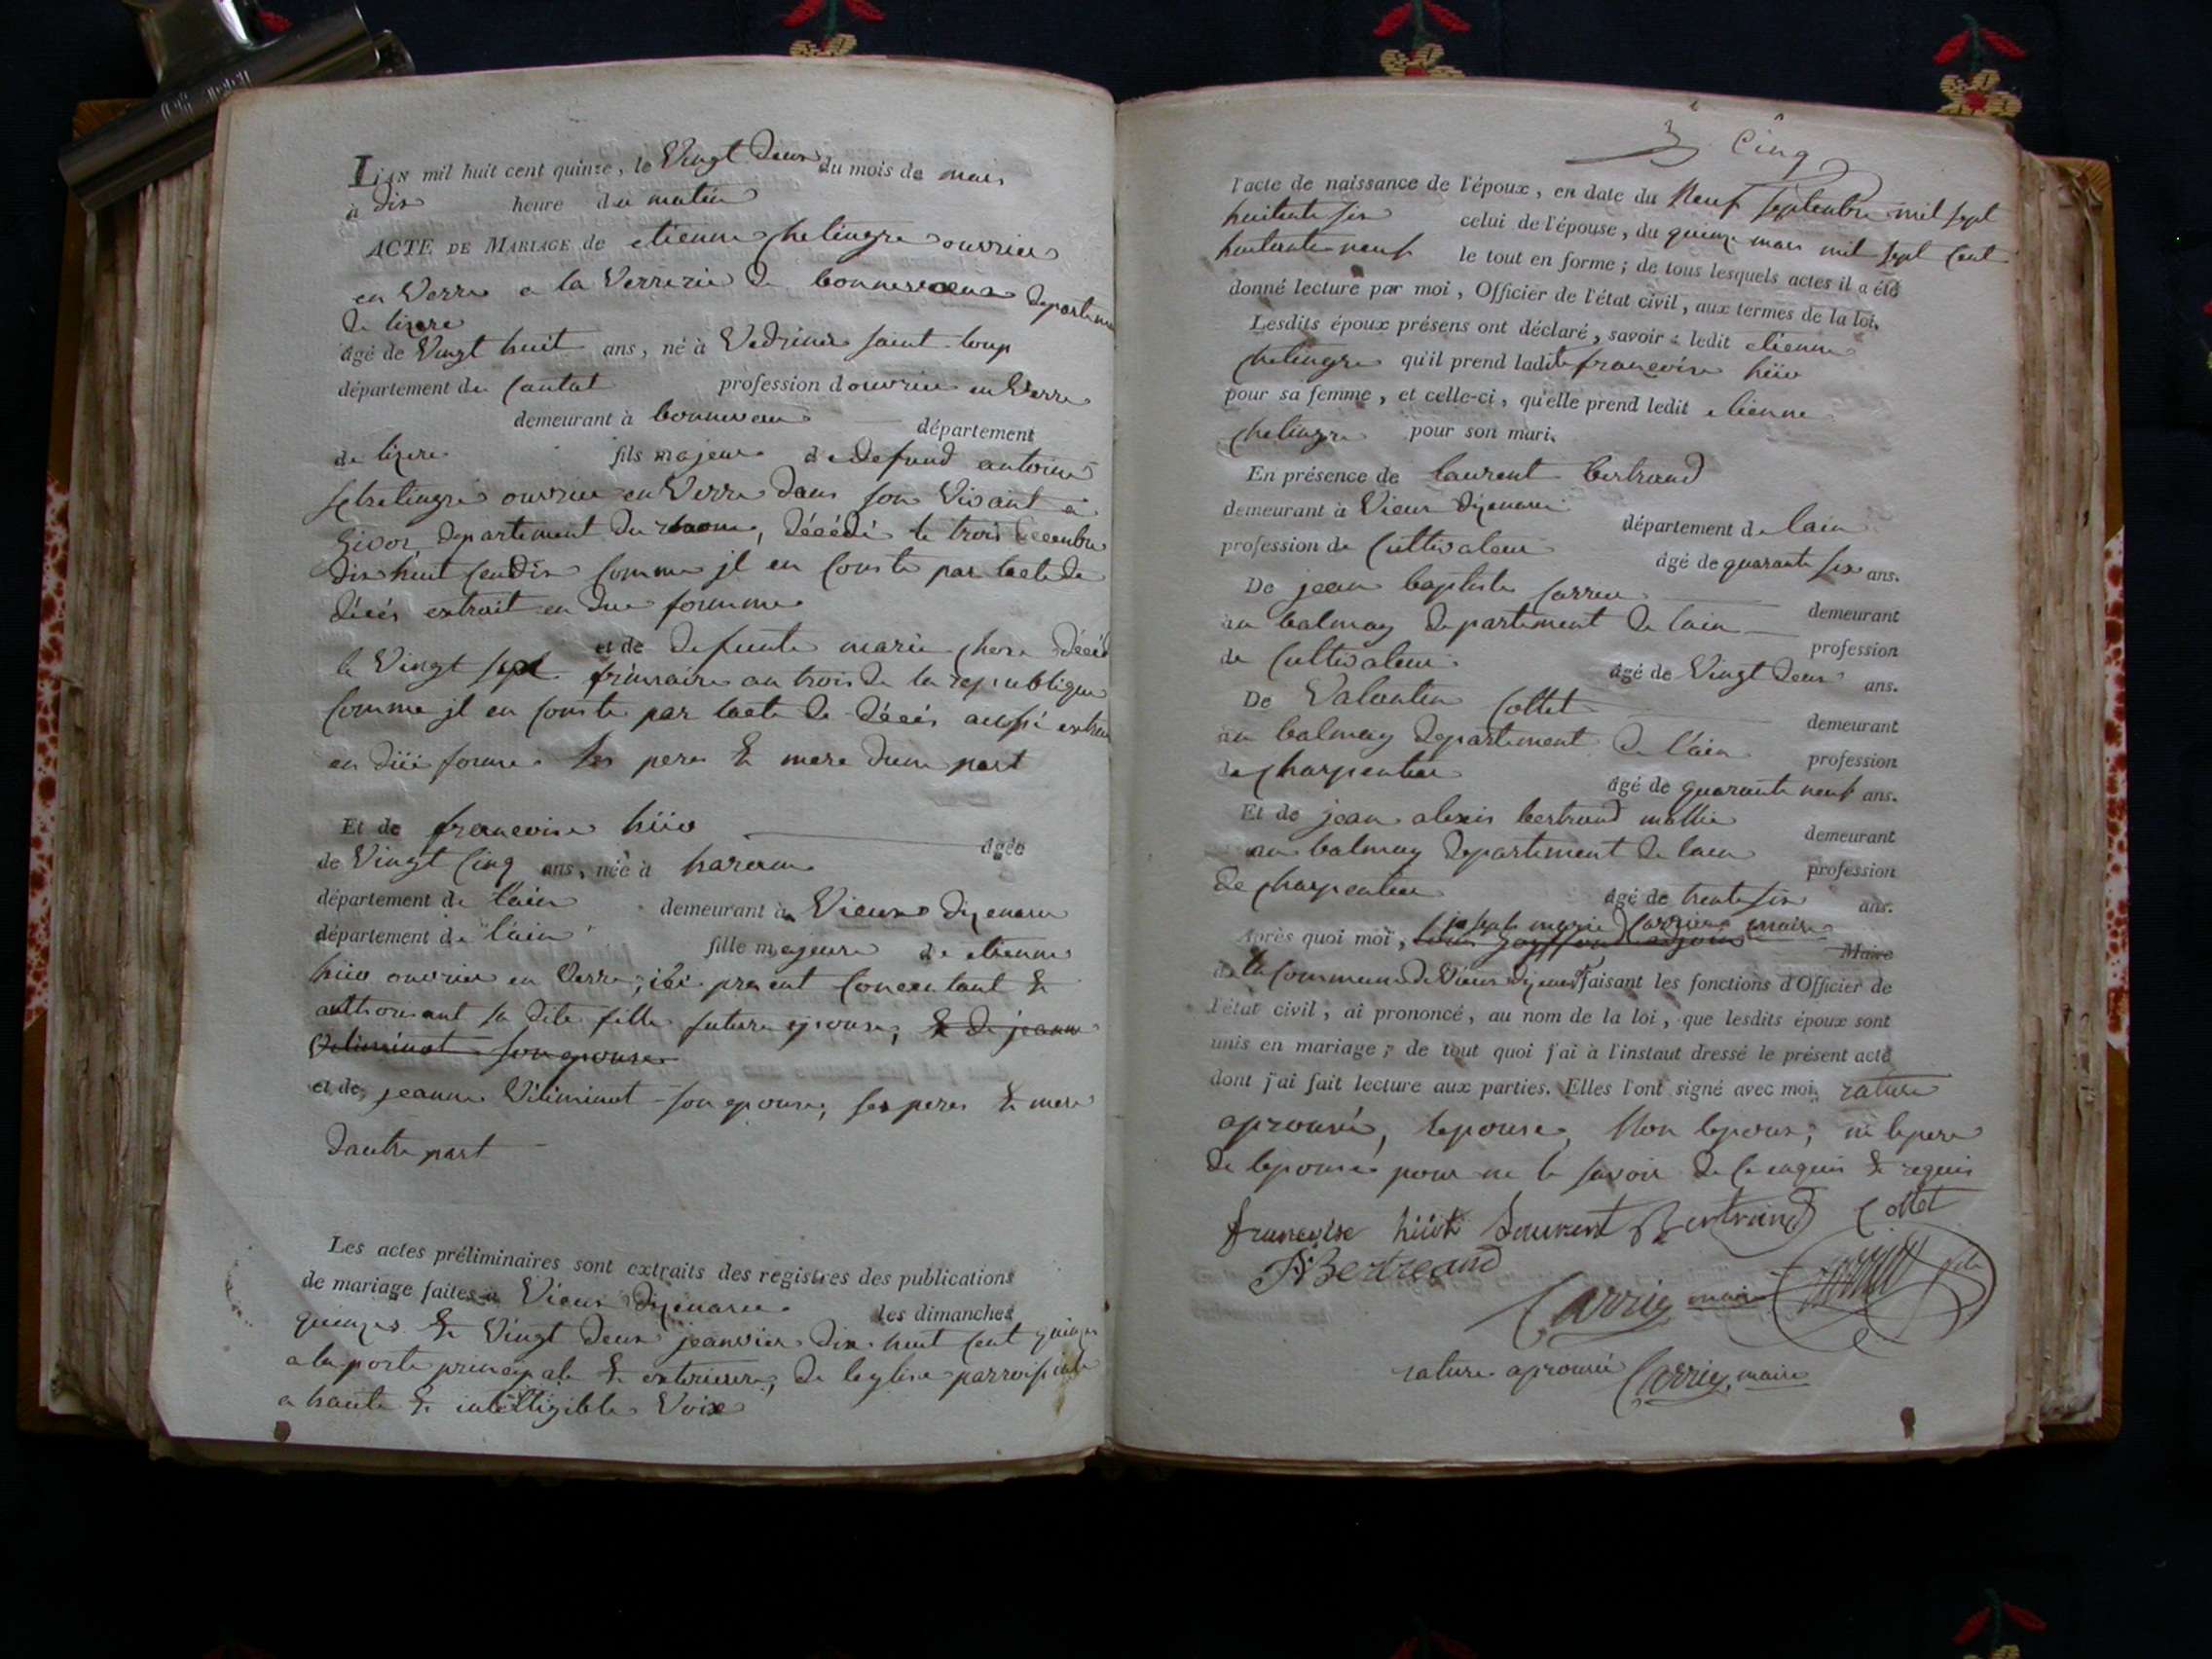 L'an mil huit cent quinze, le Vingt deux du mois de mars
à dix heure du matin
ACTE DE MARIAGE de etienne chelingre ouvrier
en Verre a la Verrerie de bonnevaux departeme
de lizere
âgé de Vingt huit ans, né à Vedrines saint loup
département du Cantal profession d ouvrier en Verre
demeurant à bonnevaux département
de lizere fils majeur de defund antoine
schelingre ouvrier en Verre dans son Vivant a
Givor departement du rhone, décédé le trois decembre
dix huit cendix comme jl en conste par lacte de
décés extrait en due formme
et de defunte marie chere décéd
le Vingt sept frimaire an trois de la republique
comme jl en conste par lacte de décés aussi extrai
en düe forme ses pere & mere dune part
Et de francoise hüo âgée
de Vingt Cinq ans, née à
département de lain demeurant à Vieux dizenave
département de lain fille majeure de etienne
hüo ouvrier en Verre, ici present concentant &
authorisant sa dite fille future epouse, & de jeanne
Viliminot son epouse
et de jeanne Viliminot son epouse, ses pere & mere
dautre part
Les actes préliminaires sont extraits des registres des publications
de mariage faites à Vieux dizenave les dimanches
quinze & Vingt deux janvier dix huit cent quinze
a la porte principale & exterieure, de leglise parroissiale
a haute & intelligible Voix
Cinq
l'acte de naissance de l'époux, en date du Neuf septembre mil sept
huitante six celui de l'épouse, du quinze mars mil sept cent
huitante neuf le tout en forme ; de tous lesquels actes il a été
donné lecture par moi, Officier de l'état civil, aux termes de la loi.
Lesdits époux présens ont déclaré, savoir : ledit etienne
chelingre qu'il prend ladite francoise hüo
pour sa femme, et celle-ci, qu'elle prend ledit etienne
chelingre pour son mari.
En présence de laurent bertrand
demeurant à Vieux dizenave département de lain
profession de Cultivateur âgé de quarante six ans.
De jean baptiste Carrier demeurant
au balmay departement de lain profession
de Cultivateur âgé de Vingt deux ans.
De Valentin Collet demeurant
au balmay departement de l'ain profession
de charpentier âgé de quarante neuf ans.
Et de jean alexis bertrand mollie demeurant
au balmay departement de lain profession
de charpentier âgé de trente six ans.
Après quoi moi, marie Carrier maire Maire
de la Commune de Vieux dizenave faisant les fonctions d'Officier de
l'état civil, ai prononcé, au nom de la loi, que lesdits époux sont
unis en mariage ; de tout quoi j'ai à l'instant dressé le présent acte
dont j'ai fait lecture aux parties. Elles l'ont signé avec moi. rature
aprouvé, lepouse, Non lepoux, ni lepere
de lepouse pour ne le savoir de ce enquis & requis
francoise hüot Laurent Bertrand Collet
Bertrand
Carrier maire
rature aprouvé Carrier, maire